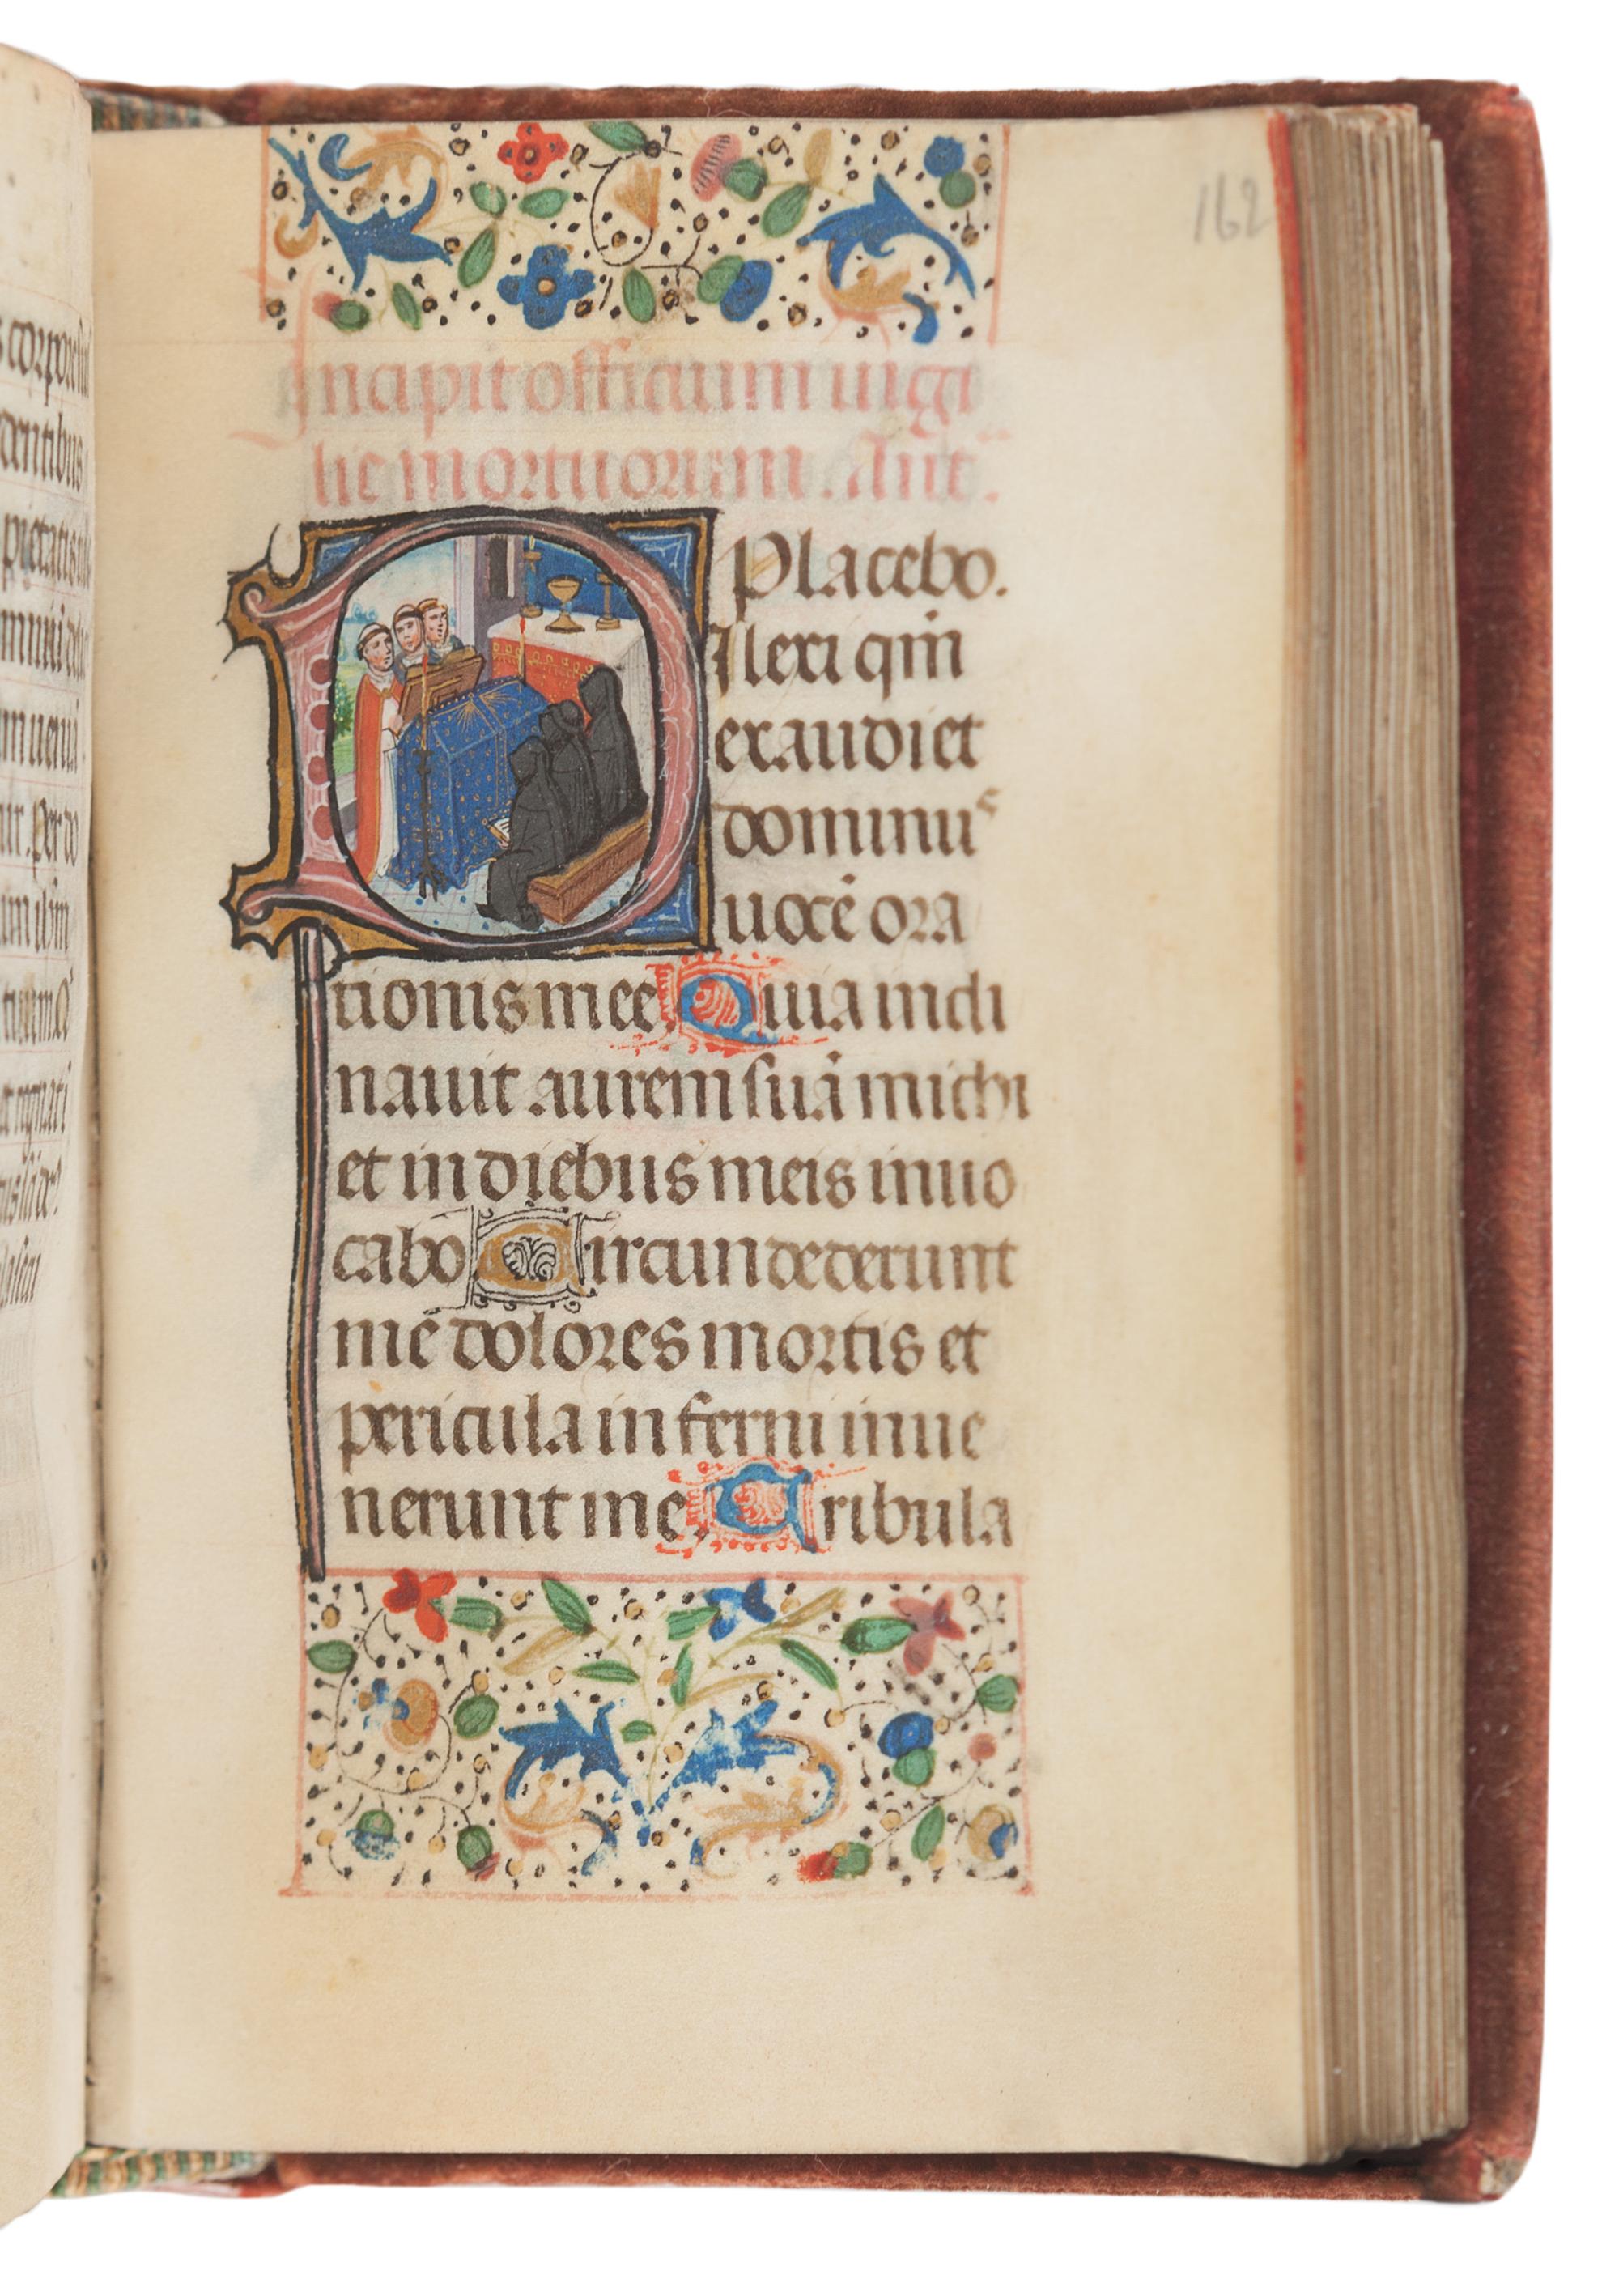 162
Incipit officium uigi
lie mortuorum. Ant.
Placebo.
Dilexi qm̄
exaudiet
dominus
uocē ora
tionis mee. Quia incli
nauit aurem suā michi
et in diebus meis inuo
cabo Circundederunt
me dolores mortis et
pericula inferni inue
nerunt me. Tribula